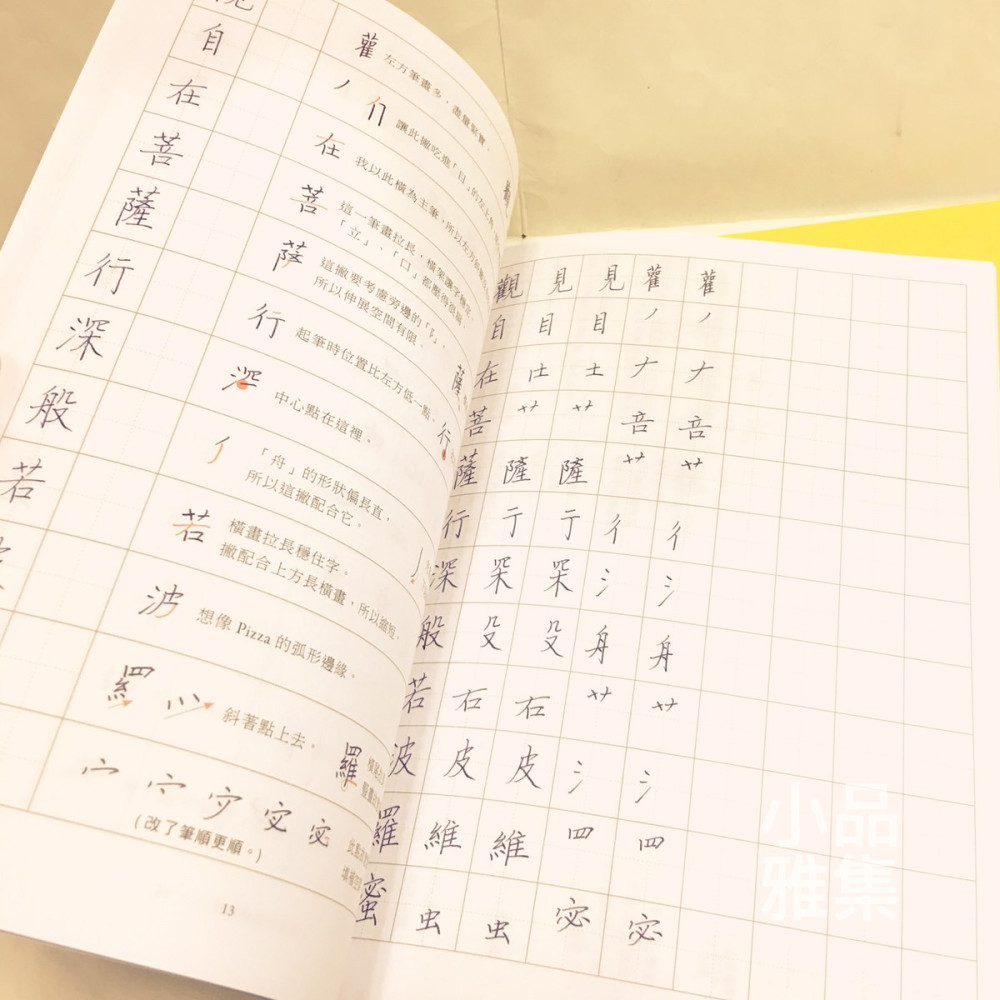 自
在
菩
薩
行
深
般
若
雚 左方筆畫多,盡量緊實。
讓此撇吃進「目」的左上
在 我以此橫為主筆,所以左方
菩 這一筆畫拉長,橫架讓字穩定、
「立」、「口」都壓得很扁。
薩 這撇要考慮旁邊的「阝」,
所以伸展空間有限。
行 起筆時位置比左方低一點,
深 中心點在這裡。
「舟」的形狀偏長直,
所以這撇配合它。
若 橫畫拉長穩住字。
撇配合上方長橫畫,所以縮短。
波 想像 Pizza 的弧形邊緣。
斜著點上去。
宓
(改了筆順更順。)
13
薩
行
羅
觀 見 見 雚 雚
自 目 目 丿 丿
在 土 𠂇 𠂇
菩 艹 艹 咅 咅
薩 薩 薩 艹 艹
行 亍 亍 彳 彳
深 罙 罙 氵 氵
般 殳 殳 舟 舟
若 右 右 艹 艹
波 皮 皮 氵 氵
羅 維 維 罒 罒
蜜 虫 虫 宓 宓
小品
雅集